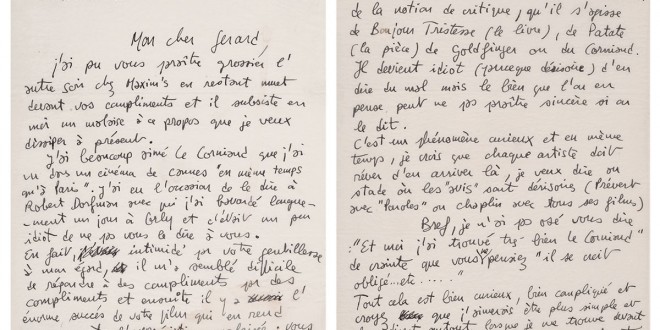 Mon cher Gerard,
j'ai pu vous paraître grossier l'
autre soir chez Maxim's en restant muet
devant vos compliments et il subsiste en
moi un malaise à ce propos que je veux
dissiper à présent.
J'ai beaucoup aimé le Corniaud que j'ai
vu dans un cinéma de Cannes "en même temps
qu'à Paris". J'ai eu l'occasion de le dire à
Robert Dorfman avec qui j'ai bavardé longue-
ment un jour à Orly et c'était un peu
idiot de ne pas vous le dire à vous.
En fait, intimidé par votre gentillesse
à mon égard, il m'a semblé difficile
de répondre à des compliments par des
compliments et ensuite il y a l'
énorme succès de votre film qui en rend
vous
de la notion de critique, qu'il s'agisse
de Bonjour Tristesse (le livre), de Patate
(la pièce) de Goldfinger ou du Corniaud.
Il devient idiot (parceque dérisoire) d'en
dire du mal mais le bien que l'on en
pense peut ne pas paraître sincère si on
le dit.
C'est un phénomène curieux et en même
temps, je crois que chaque artiste doit
rêver d'en arriver là, je veux dire au
stade où les "avis" sont dérisoires (Prévert
avec "Paroles" ou Chaplin avec tous ses films)
Bref, je n'ai pas osé vous dire
:"Et moi j'ai trouvé très bien le Corniaud"
de crainte que vous ne pensiez "il se croit
obligé... etc....."
Tout cela est bien curieux, bien compliqué et
croyez que j'aimerais être plus simple et
surtout lorsque je me trouve devant